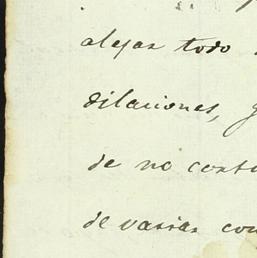 alejar todo
dilaciones,
de no
de varias